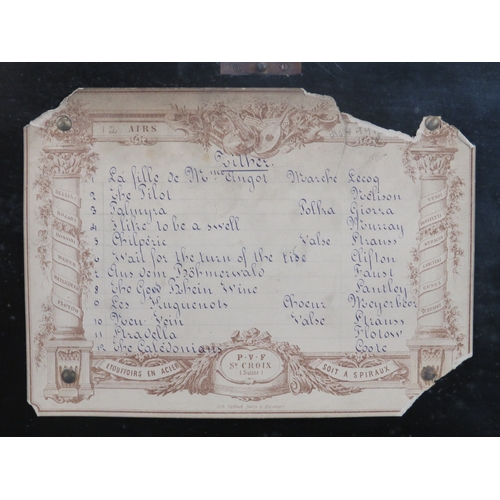 12 AIRS
Zither.
1 La fille de Mme Angot Marche Lecoq
2 The Pilot Nelison
3 Palmyra Polka Giorza
4 I like to be a swell Murray
5 Chilpéric Valse Strauss
6 Wait for the turn of the rise Clifton
7 Aus dem Böhmerwald Faust
8 The Good Rhein Wine Santley
9 Les Huguenots Choeur Meyerbeer
10 Neu Wein Valse Strauss
11 Stradella Flotow
12 The Caledonians Coote
ETOUFFOIRS EN ACIER
P·V·F
St CROIX
(Suisse)
SOIT A SPIRAUX